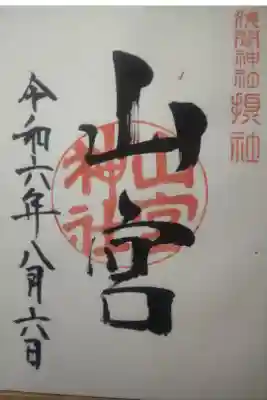 淺間神社摂社
山宮
山宮神社
令和六年八月六日